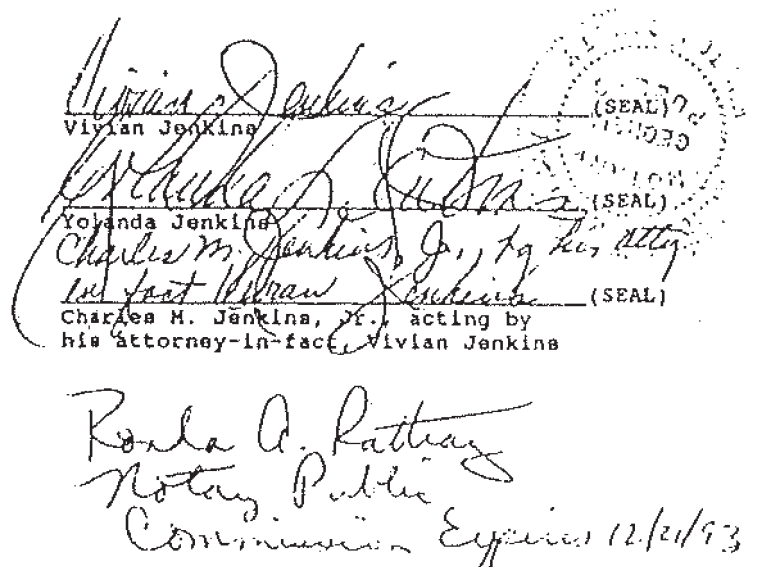 Vivian Jenkins (SEAL)
Vivian Jenkins
Yolanda (SEAL)
Yolanda Jenkins
Charles M. Jenkins, Jr., by his atty
in fact Vivian Jenkins (SEAL)
Charles M. Jenkins, Jr., acting by
his attorney-in-fact, Vivian Jenkins
Ronda A. Rattray
Notary Public
Commission Expires 12/21/93
GEORGIA